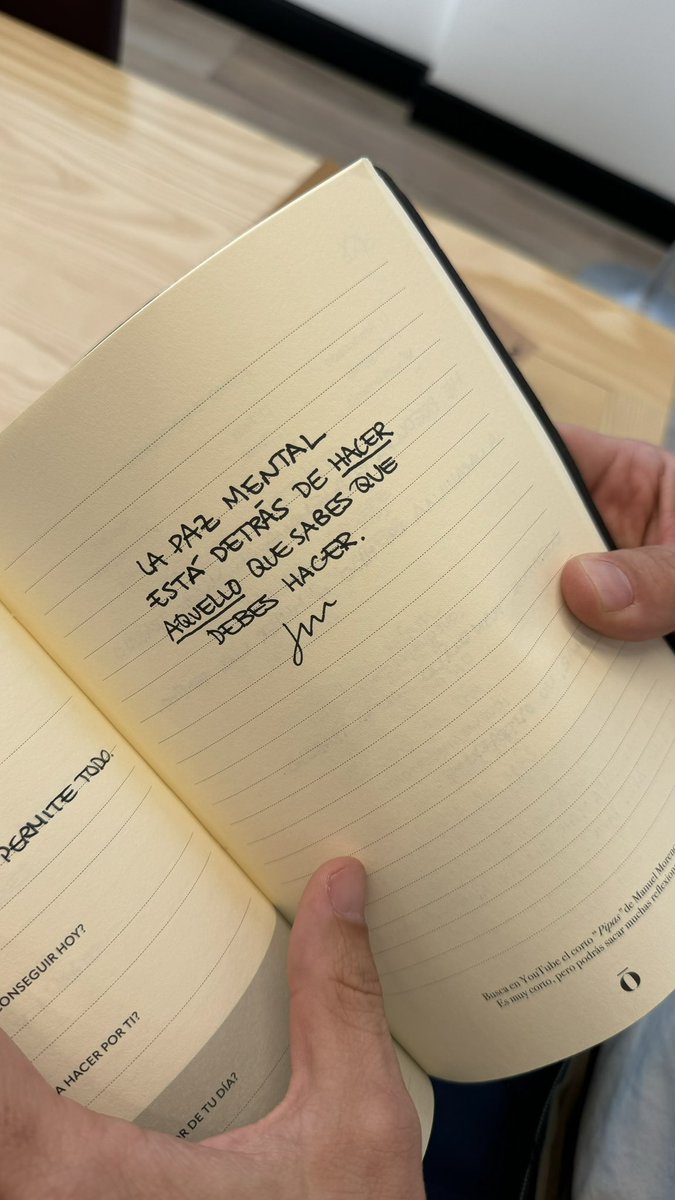 LA PAZ MENTAL
ESTÁ DETRÁS DE HACER
AQUELLO QUE SABES QUE
DEBES HACER.
PERMITE TODO.
CONSEGUIR HOY?
A HACER POR TI?
OR DE TU DÍA?
Busca en YouTube el corto "Pipas" de Manuel Moreno
Es muy corto, pero podrás sacar muchas reflexion
Ō